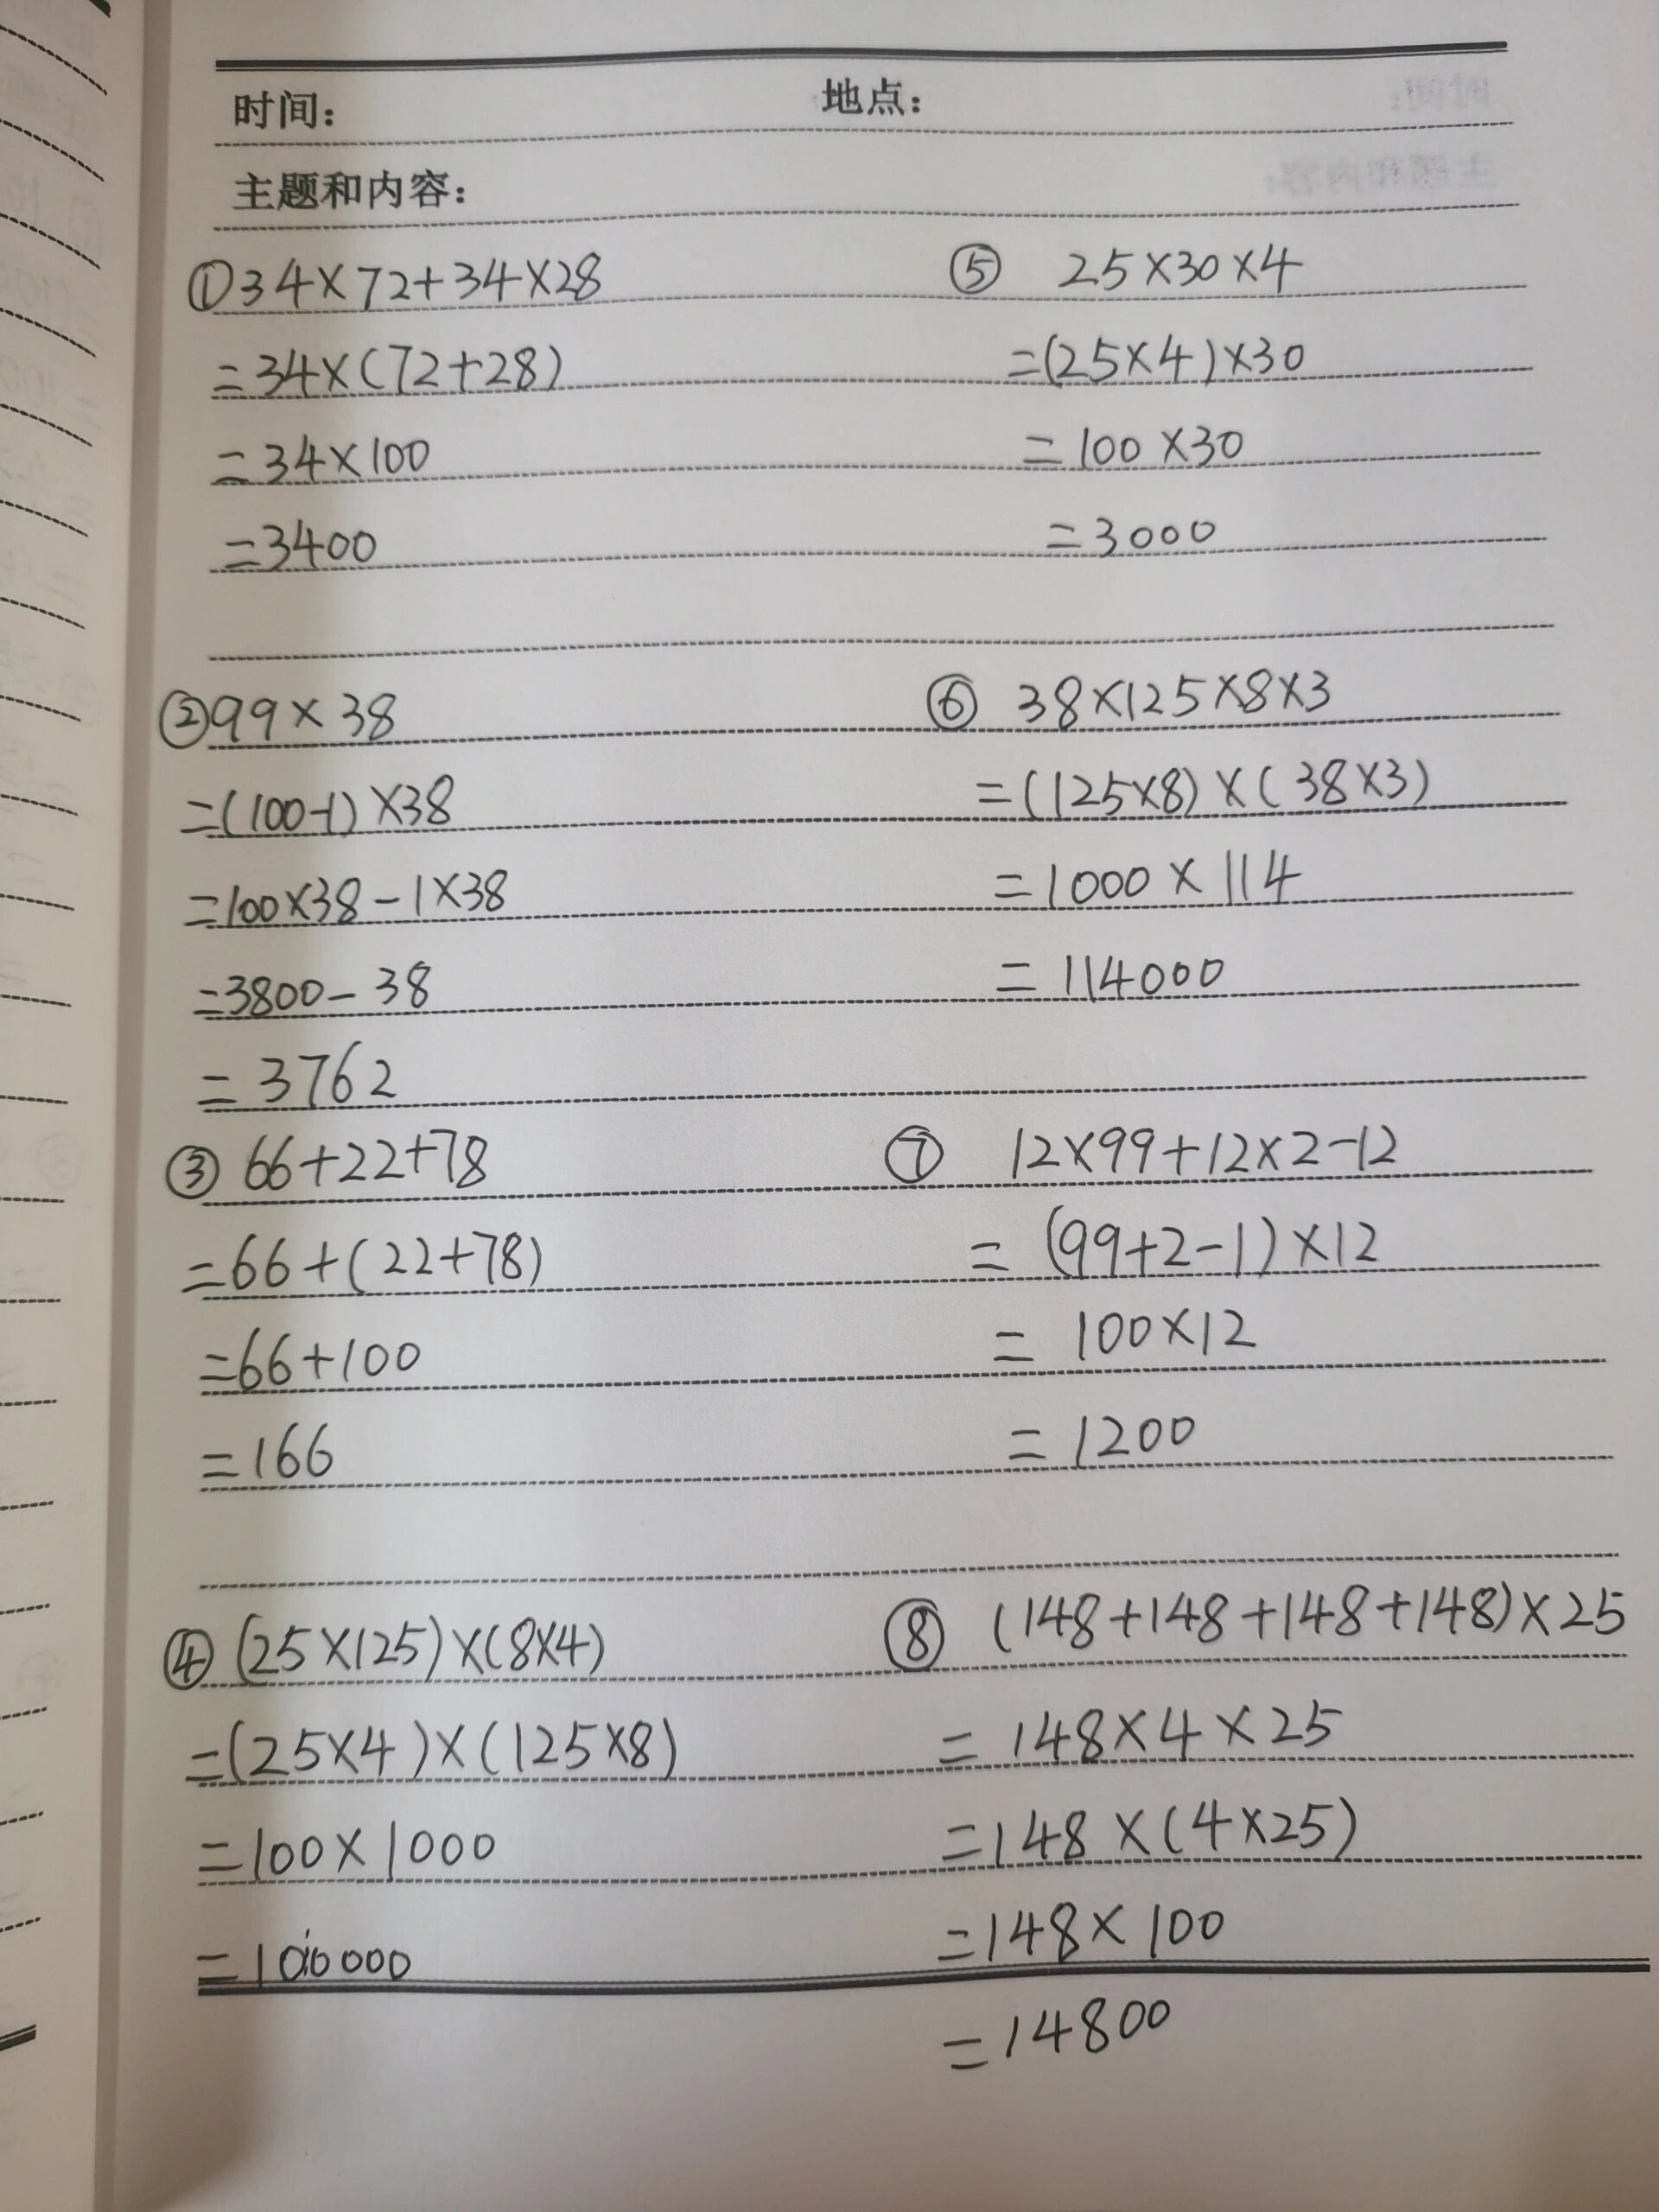 时间： 地点：
主题和内容：
①34×72+34×28
=34×(72+28)
=34×100
=3400
②99×38
=(100-1)×38
=100×38-1×38
=3800-38
=3762
③ 66+22+78
=66+(22+78)
=66+100
=166
④(25×125)×(8×4)
=(25×4)×(125×8)
=100×1000
=100000
⑤ 25×30×4
=(25×4)×30
=100×30
=3000
⑥ 38×125×8×3
=(125×8)×(38×3)
=1000×114
=114000
⑦ 12×99+12×2-12
=(99+2-1)×12
=100×12
=1200
⑧ (148+148+148+148)×25
=148×4×25
=148×(4×25)
=148×100
=14800